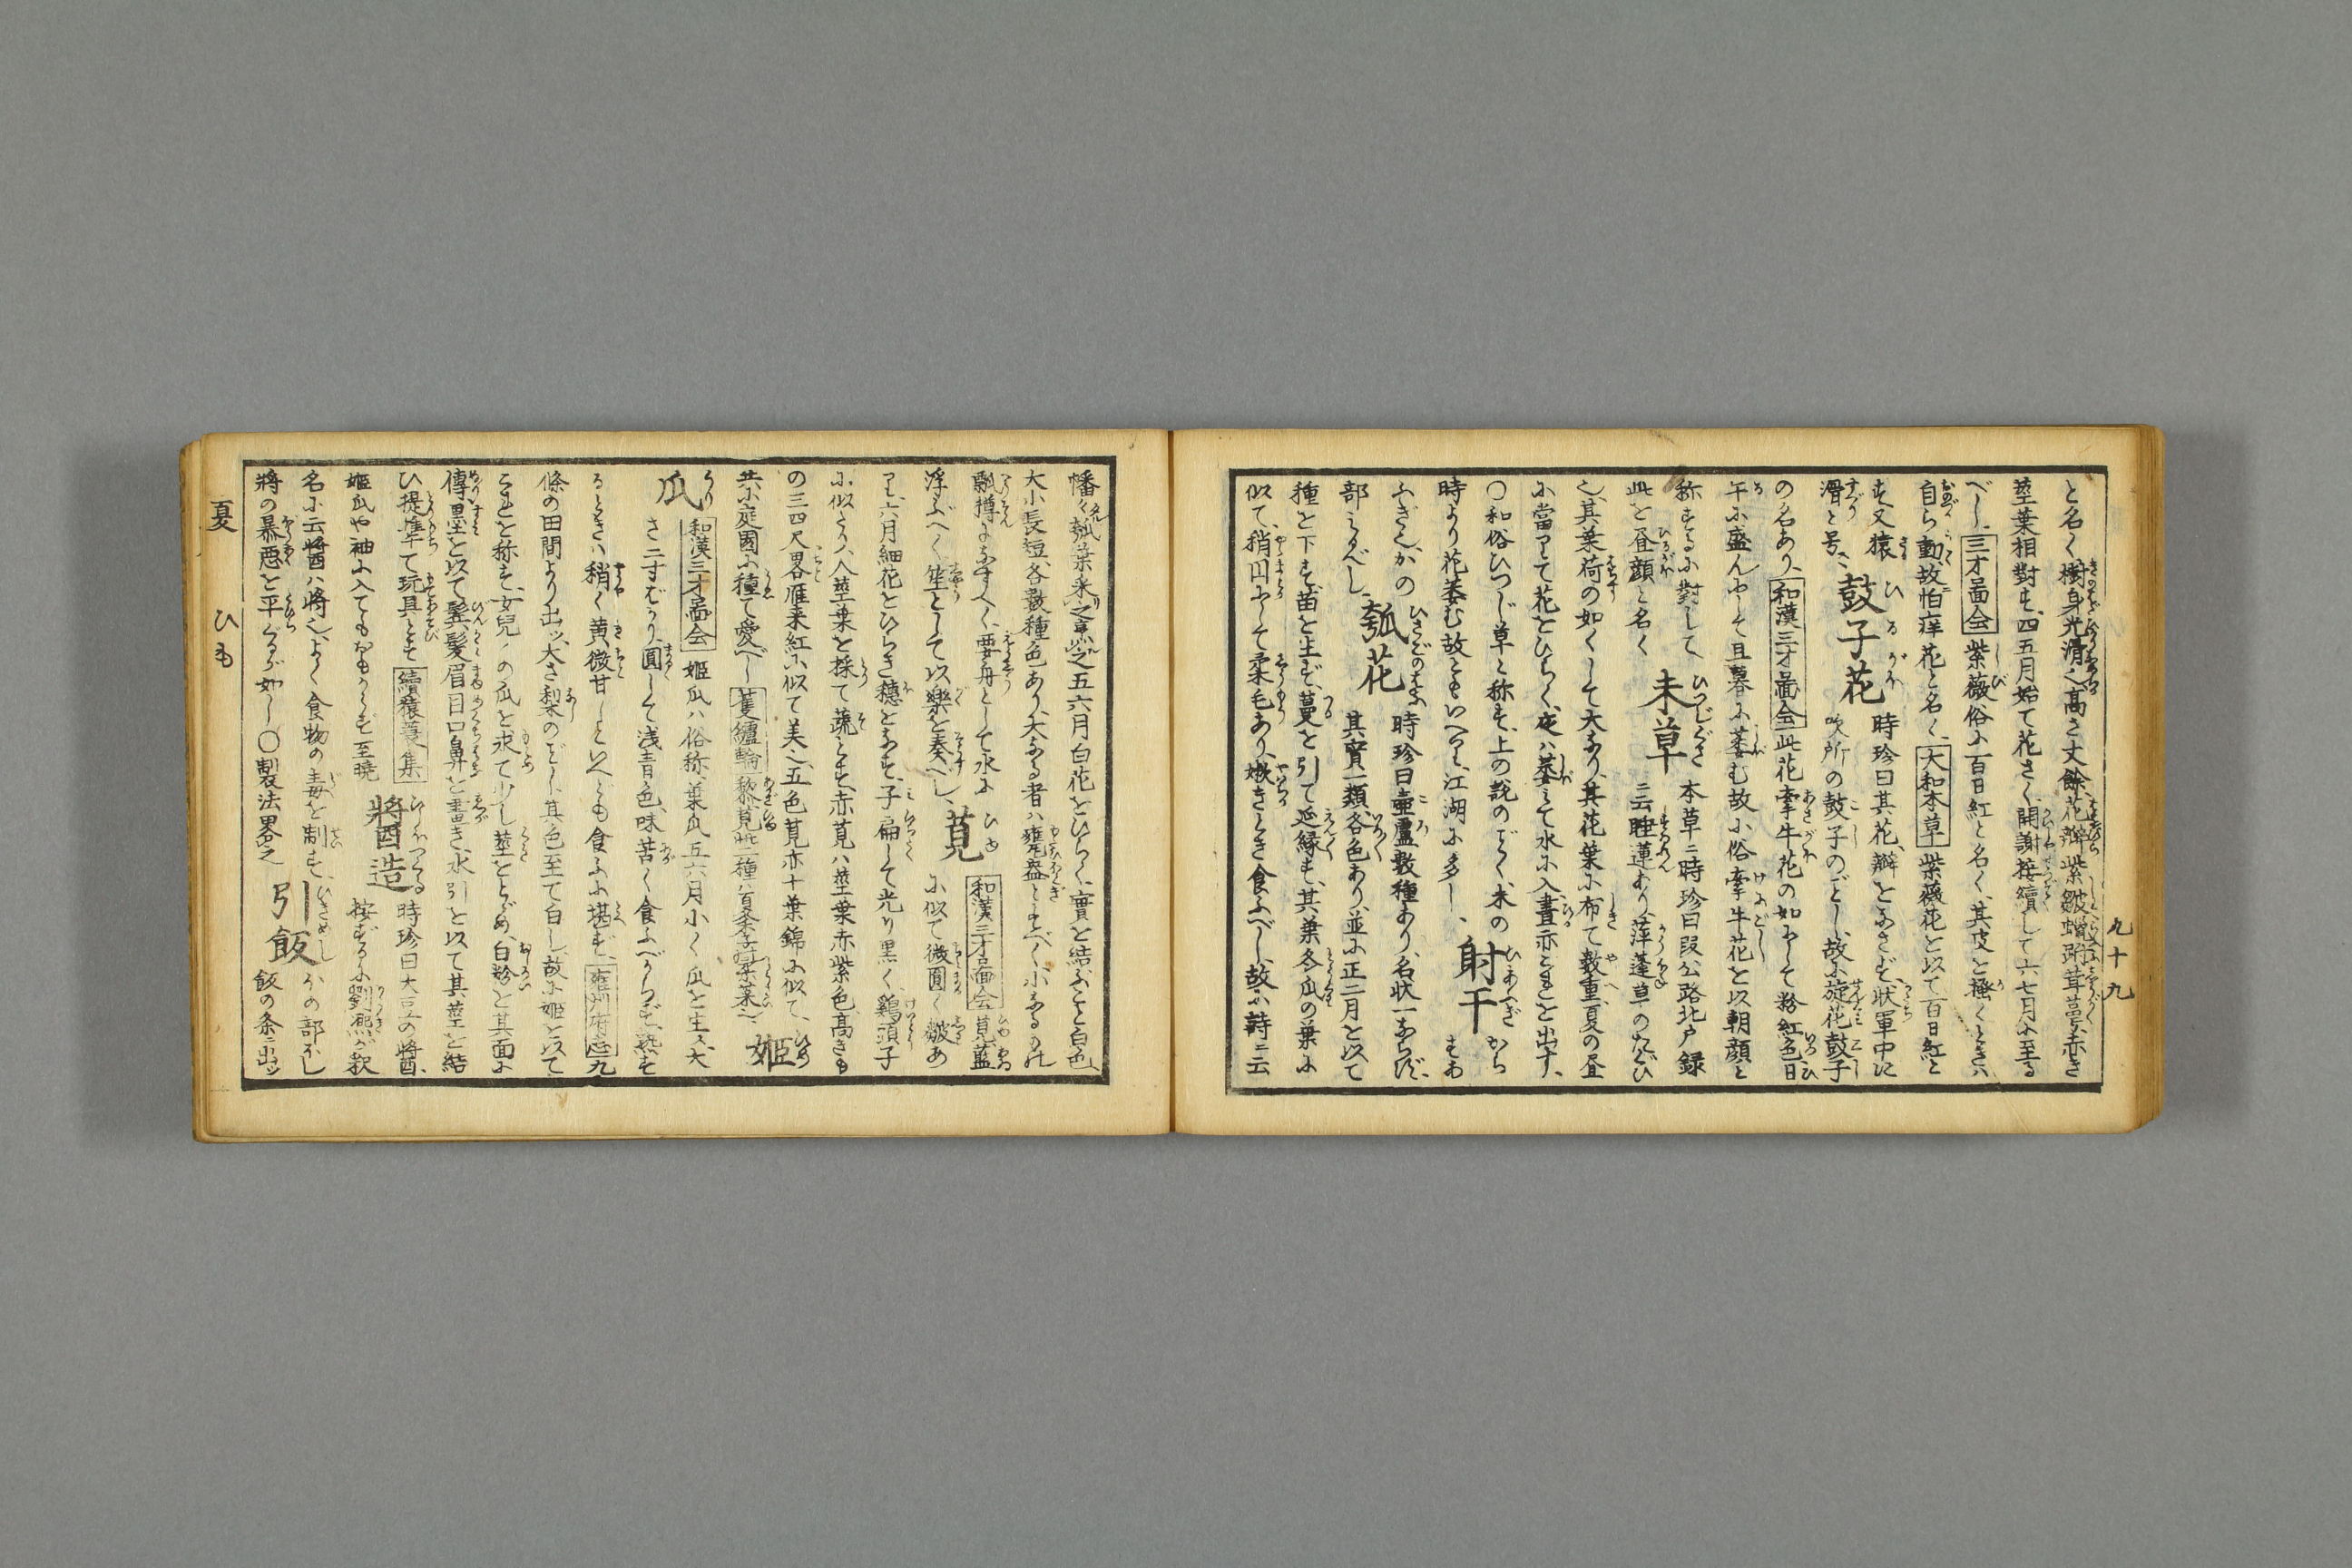 九十九
と名く樹身光滑之高さ丈餘花瓣紫皺蠟跗茸萼赤き
茎葉相對す四五月始て花さく開謝接續して六七月に至る
べし三才圖会紫薇俗に百日紅と名く其皮を搔くときハ
自ら動故怕痒花と名く大和本草紫薇花を以て百日紅と
す又猿
滑と号、鼓子花時珍曰其花瓣をなさず状軍中に
吹所の鼓子のごとし故に旋花鼓子
の名あり和漢三才圖会此花牽牛花の如にして粉紅色日
午に盛んにして且暮に萎む故に俗牽牛花を以朝顔と
称するに對して
此を昼顔と名く未草本草ニ時珍曰段公路北戸録
ニ云睡蓮あり萍蓬草のたぐひ
也其葉荷の如くして大なり其花葉に布て数重夏の昼
に當りて花をひらく夜ハ萎て水に入晝亦これを出す、
〇和俗ひつじ草と称す、上の説のごとく未の
時より花萎む故ともいへり、江湖に多し、射干からすあ
ふぎしかの
部にるべし、瓠花時珍曰壷盧数種あり、名状一ならず、
其實一類各色あり、並に正二月を以て
種を下す苗を生ず、蔓を引て延縁す、其葉冬瓜の葉に
似て、稍円にして柔毛あり、嫩きとき食ふべし、故に詩ニ云
幡々瓠葉采之烹之五六月白花をひらく、實を結ぶこと白色、
大小長短各数種色あり、大なる者ハ甕盎とすべく小なるのハ
瓢樽になすへく、要舟として水に
浮ぶべく笙として以樂を奏べし、莧和漢三才圖会莧藍
に似て微圓く皺あ
り、六月細花をひらき穗をなす、子扁して光り黒く、鶏頭子
に似たり、人茎葉を採て蔬とす、赤莧ハ茎葉赤紫色高きも
の三四尺畧雁来紅に似て美之、五色莧亦十葉錦に似て、
共に庭園に種て愛べし
姫
瓜和漢三才圖会姫瓜ハ俗称葉瓜五六月小く瓜を生ス、大
さ二寸ばかり、圓して浅青色、味苦く食ふべからず、熟す
るときハ稍く黄微甘しといへども食ふに堪ず、雍州府志九
條の田間より出ツ、大さ梨のごとし其色至て白し、故に姫を以て
これを称す、女兒この瓜を求て少し茎をとどめ、白粉を其面に
傅墨を以て鬢髪眉目口鼻を畫き、水引を以て其茎を結
ひ提携て玩具とす續猿蓑集
姫瓜や袖に入てもおもからず至暁
將酉造時珍曰大豆の将酉、
按ずるに劉熙が釈
名に云醤ハ将也、よく食物の毒を制す、
將の暴悪を平ぐるが如し〇製法畧之
引飯ほしかの部
飯の条ニ出ツ
夏　ひも